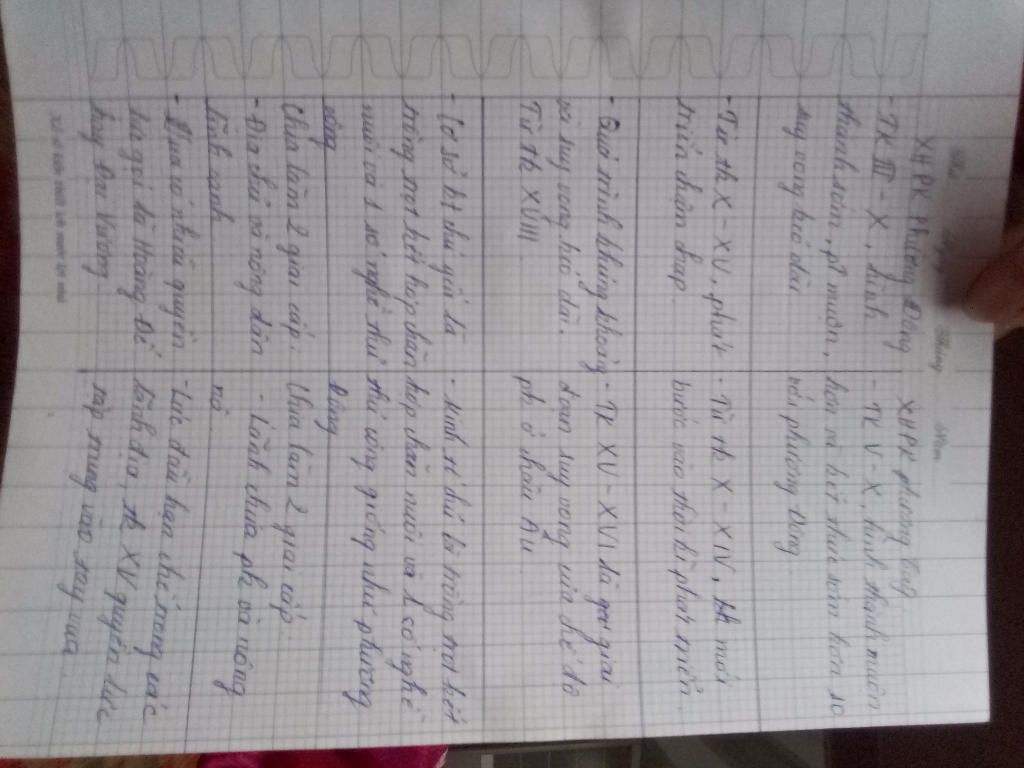 Thứ ... Ngày ... Tháng ... Năm...
XHPK Phương Đông
- TK III - X, hình
thành sớm, pt muộn,
suy vong kéo dài
- Từ tk X - XV, phát
triển chậm chạp
- Quá trình khủng khoảng
và suy vong kéo dài.
Từ tk XVIII
- Cơ sở kt chủ yếu là
trồng trọt kết hợp chăn
nuôi và 1 số nghề thủ
công
Chia làm 2 giai cấp:
- Địa chủ và nông dân
lĩnh canh
- Vua có nhiều quyền
lực gọi là Hoàng Đế
hay Đại Vương
XHPK phương Tây
- TK V - X, hình thành muộn
hơn và kết thúc sớm hơn so
với phương Đông
- Từ tk X - XIV, mới
bước vào thời kì phát triển
- TK XV - XVI là giai
đoạn suy vong của chế độ
pk ở châu Âu
- Kinh tế chủ là trồng trọt kết
hợp chăn nuôi và 1 số nghề
thủ công giống như phương
Đông
Chia làm 2 giai cấp:
- Lãnh chúa pk và nông
nô
- Lúc đầu hạn chế trong các
lãnh địa, tk XV quyền lực
tập trung vào tay vua